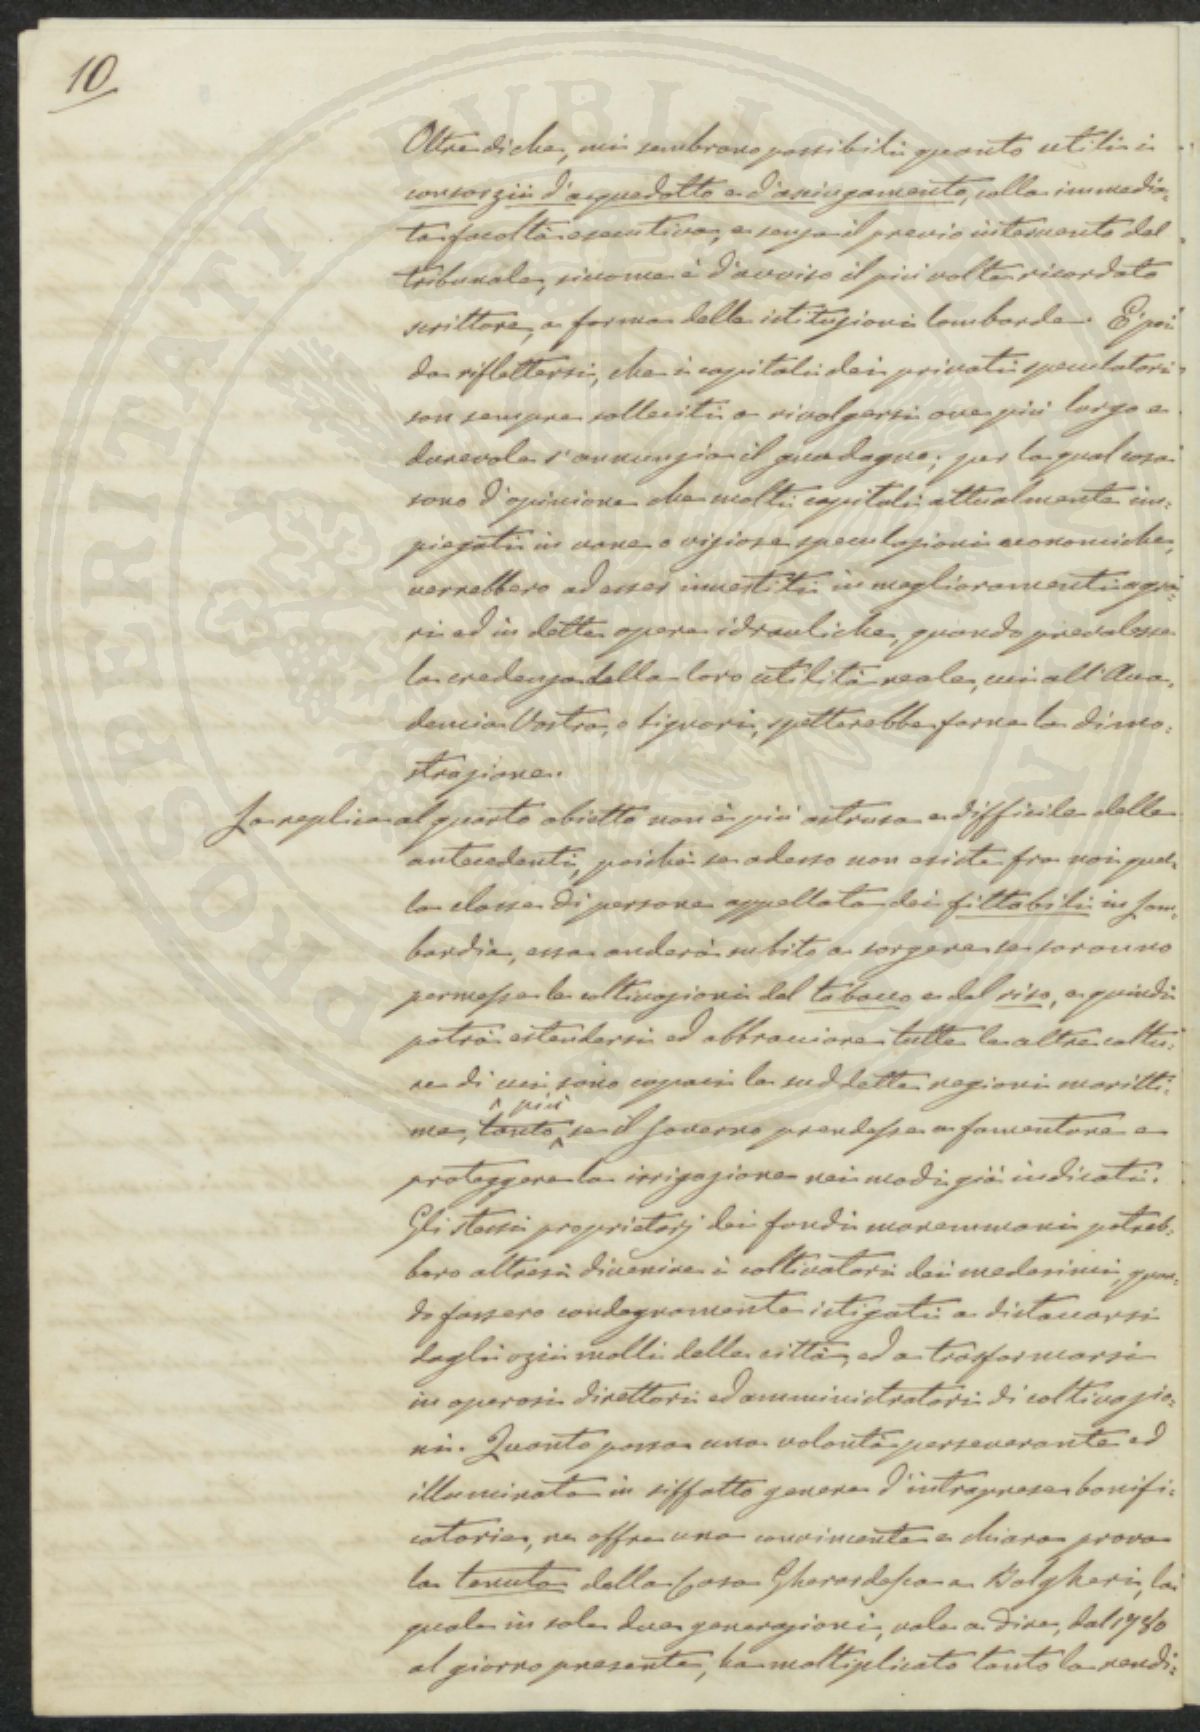 10
Oltredichè, mi sembrano possibili quanto utili i
consorzii d'acquedotto e d'asciugamento, colla immedia=
ta facoltà esecutiva, e senza il previo intervento del
tribunale, siccome è d'avviso il più volte ricordato
scrittore, a forma delle istituzioni lombarde. È poi
da riflettersi, che i capitali dei privati speculatori
son sempre solleciti a rivolgersi ove più largo e
durevole s'annunzia il guadagno; per la qual cosa
sono d'opinione che molti capitali attualmente im=
piegati in vane o viziose speculazioni economiche,
verrebbero ad esser investiti in miglioramenti agra=
ri ed in dette opere idrauliche, quando prevalesse
la credenza della loro utilità reale, cui all'Acca=
demia Vostra, o Signori, spetterebbe farne la dimo=
strazione.
La replica al quarto obietto non è più astrusa e difficile delle
antecedenti, poichè se adesso non esiste fra noi quel=
la classe di persone appellata dei fittabili in Lom=
bardia, essa anderà subito a sorgere se saranno
permesse le coltivazioni del tabacco e del riso, e quindi
potrà estendersi ed abbracciare tutte le altre coltu=
re di cui sono capaci le suddette regioni maritti=
me, tanto più se il Governo prendesse a fomentare e
proteggere la irrigazione nei modi già indicati.
Gli stessi proprietarj dei fondi maremmani potreb=
bero altresì divenire i coltivatori dei medesimi, quan=
do fossero condegnamente istigati a distaccarsi
dagli ozii molli delle città, ed a trasformarsi
in operosi direttori ed amministratori di coltivazio=
ni. Quanto possa una volontà perseverante ed
illuminata in siffatto genere d'intraprese bonifi=
catorie, ne offre una convincente e chiara prova
la tenuta della Casa Gherardesca a Bolgheri, la
quale in sole due generazioni, vale a dire, dal 1780
al giorno presente, ha moltiplicato tanto la rendi=
PROSPERITATI PUBLICAE